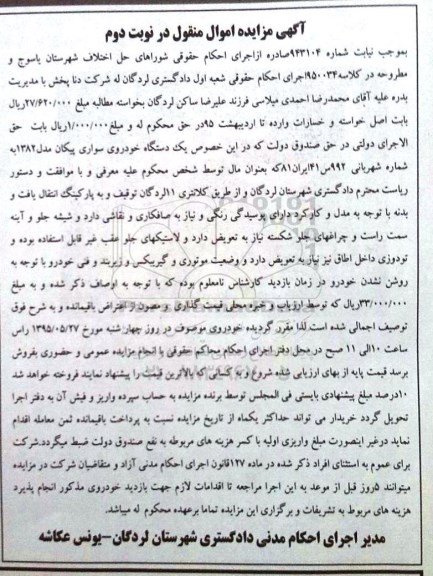 آگهی مزایده اموال منقول در نوبت دوم
بموجب نیابت شماره ۹۴۳۱۰۴صادره ازاجرای احکام حقوقی شوراهای حل اختلاف شهرستان یاسوج و
مطروحه در کلاسه۹۵۰۰۳۴اجرای احکام حقوقی شعبه اول دادگستری لردگان له شرکت دنا پخش با مدیریت
بدره علیه آقای محمدرضا احمدی میلاسی فرزند علیرضا ساکن لردگان بخواسته مطالبه مبلغ ۲۷/۶۲۰/۰۰۰ریال
بابت اصل خواسته و خسارات وارده تا اردیبهشت ۹۵در حق محکوم له و مبلغ۱/۰۰۰/۰۰۰ریال بابت حق
الاجرای دولتی در حق صندوق دولت که در این خصوص یک دستگاه خودروی سواری پیکان مدل۱۳۸۲به
شماره شهربانی ۹۹۲س۴۱ایران۸۱که بعنوان مال توسط شخص محکوم علیه معرفی و با موافقت و دستور
ریاست محترم دادگستری شهرستان لردگان و از طریق کلانتری ۱۱لردگان توقیف و به پارکینگ انتقال یافت و
بدنه با توجه به مدل و کارکرد دارای پوسیدگی رنگی و نیاز به صافکاری و نقاشی دارد و شیشه جلو و آینه
سمت راست و چراغهای جلو شکسته نیاز به تعویض دارد و لاستیکهای جلو عقب غیر قابل استفاده بوده و
تودوزی داخل اطاق نیز نیاز به تعویض دارد و وضعیت موتوری و گیربکس و زیربند و فنی خودرو با توجه به
روشن نشدن خودرو در زمان بازدید کارشناس نامعلوم بوده که با توجه به اوصاف ذکر شده و به مبلغ
۳۳/۰۰۰/۰۰۰ریال که توسط ارزیاب و خبره محلی قیمت گذاری و مصون از اعتراض باقیمانده و به شرح فوق
توصیف اجمالی شده است.لذا مقرر گردیده خودروی موصوف در روز چهار شنبه مورخ ۱۳۹۵/۰۵/۲۷ راس
ساعت ۱۰الی ۱۱ صبح در محل دفتر اجرای احکام محاکم حقوقی با انجام مزایده عمومی و حضوری بفروش
برسد قیمت پایه از بهای ارزیابی شده شروع و به کسانی که بالاترین قیمت را پیشنهاد نمایند فروخته خواهد شد
۱۰درصد مبلغ پیشنهادی بایستی فی المجلس توسط برنده مزایده به حساب سپرده واریز و فیش آن به دفتر اجرا
تحویل گردد خریدار می تواند حداکثر یکماه از تاریخ مزایده نسبت به پرداخت باقیمانده ثمن معامله اقدام
نماید درغیر اینصورت مبلغ واریزی اولیه با کسر هزینه های مربوطه به نفع صندوق دولت ضبط میگردد.شرکت
برای عموم به استثنای افراد ذکر شده در ماده ۱۲۷قانون اجرای احکام مدنی آزاد و متقاضیان شرکت در مزایده
میتوانند ۵روز قبل از موعد به این اجرا مراجعه تا اقدامات لازم جهت بازدید خودروی مذکور انجام پذیرد
هزینه های مربوط به تشریفات و برگزاری این مزایده تماما برعهده محکوم له میباشد.
مدیر اجرای احکام مدنی دادگستری شهرستان لردگان–یونس عکاشه